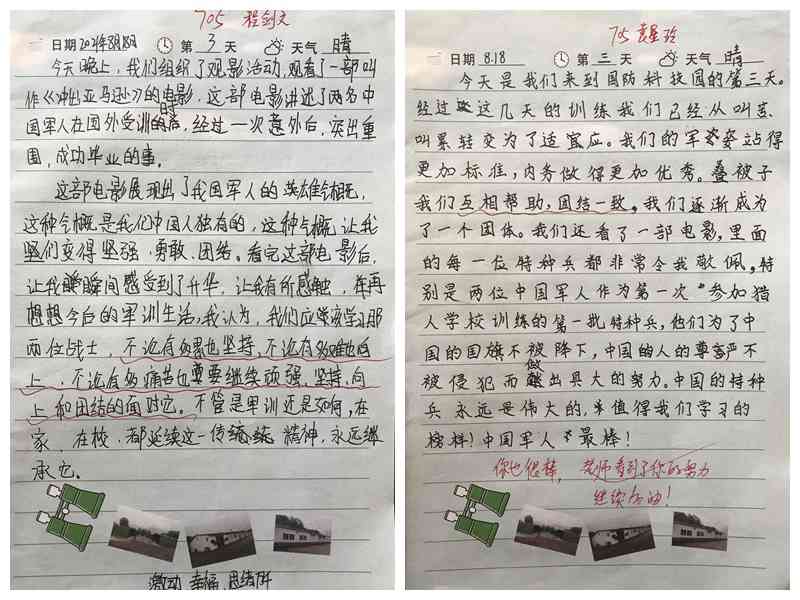 705 程剑文
日期 2021年8月18日 第 3 天 天气 晴
今天晚上，我们组织了观影活动，观看了一部叫
作《冲出亚马逊》的电影，这部电影讲述了两名中
国军人在国外受训时，经过一次意外后，突出重
围，成功毕业的事。
这部电影展现出了我国军人的英雄气概，
这种气概是我们中国人独有的，这种气概，让我
们变得坚强、勇敢、团结。看完这部电影后，
让我瞬间感受到了升华，让我有所感触，再
想想今后的军训生活，我认为，我们应该学习那
两位战士，不论有多累也坚持，不论有多难也向
上，不论有多痛苦也要继续顽强、坚持、向
上和团结的面对它。不管是军训还是如何，在
家、在校，都延续这一传统精神，永远继
承它。
激动 幸福
705
日期 8.18 第 三 天 天气 晴
今天是我们来到国防科技园的第三天。
经过这几天的训练我们已经从叫苦
叫累转变为了适应。我们的军姿站得
更加标准，内务做得更加优秀。叠被子
我们互相帮助，团结一致。我们逐渐成为
了一个团体。我们还看了一部电影，里面
的每一位特种兵都非常令我敬佩。特
别是两位中国军人作为第一次参加猎
人学校训练的第一批特种兵，他们为了中
国的国旗不被降下，中国人的尊严不
被侵犯而做出巨大的努力。中国的特种
兵永远是伟大的，值得我们学习的
榜样！中国军人最棒！
你也很棒，老师看到了你的努力
继续加油！